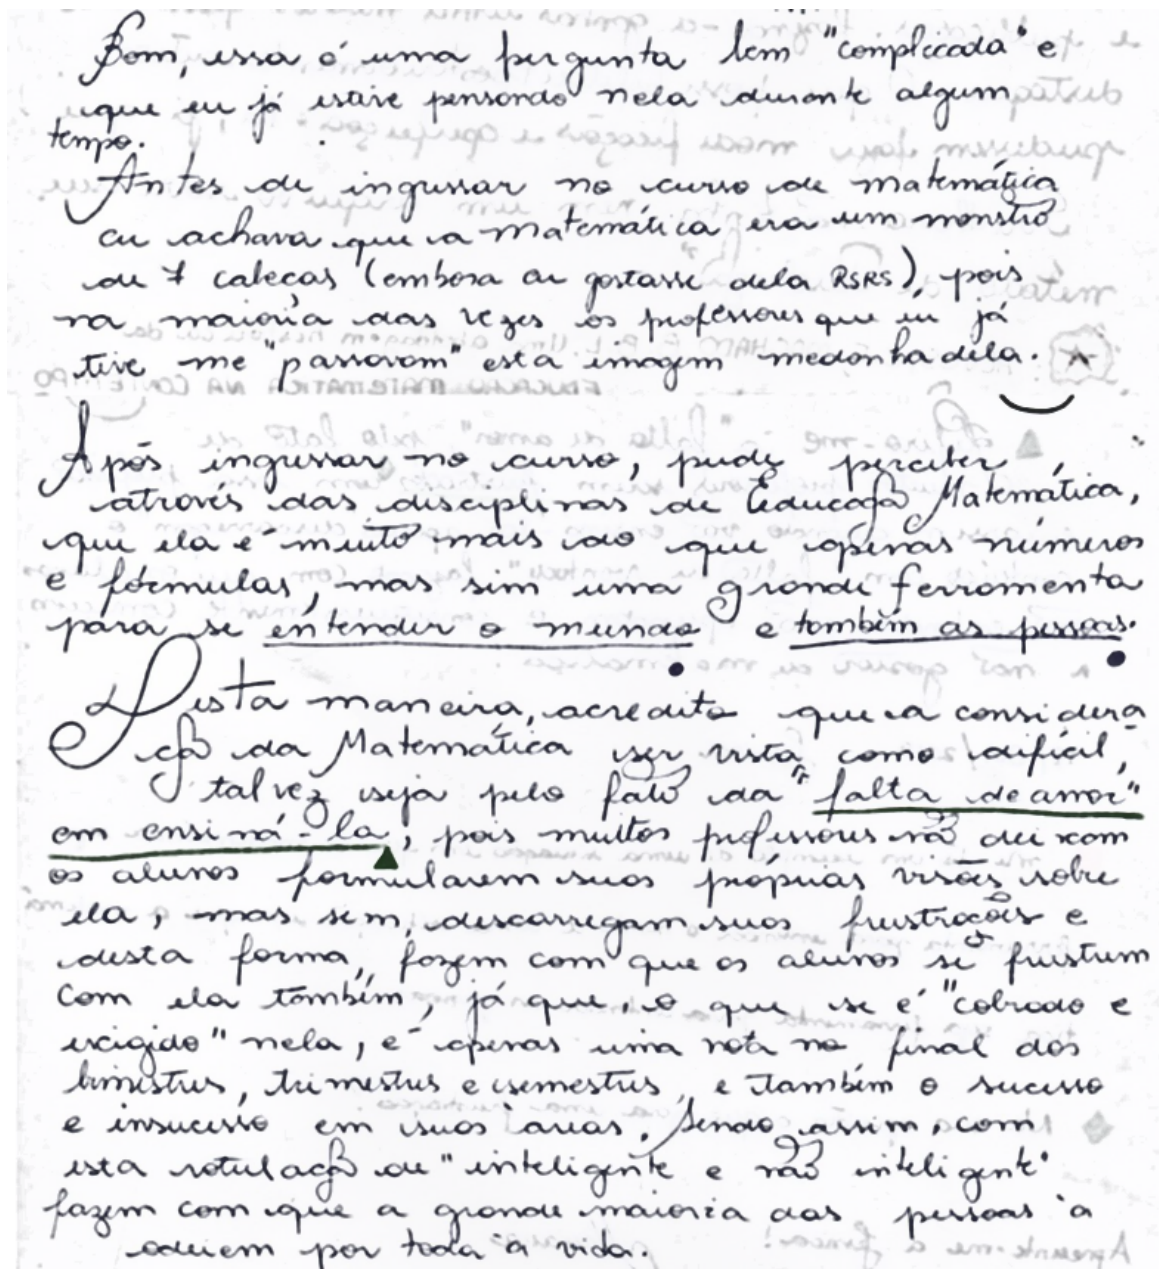 Bom, essa é uma pergunta bem "complicada" e
que eu já estive pensando nela durante algum
tempo.
Antes de ingressar no curso de matemática
eu achava que a matemática era um monstro
de 7 cabeças (embora eu gostasse dela RSRS), pois
na maioria das vezes os professores que eu já
tive me "passavam" esta imagem medonha dela.
Após ingressar no curso, pude perceber,
através das disciplinas de Educação Matemática,
que ela é muito mais do que apenas números
e fórmulas, mas sim uma grande ferramenta
para se entender o mundo e também as pessoas.
Desta maneira, acredito que a considera
ção da Matemática ser vista como difícil,
talvez seja pelo fato da "falta de amor"
em ensiná-la, pois muitos professores não deixam
os alunos formularem suas próprias visões sobre
ela, mas sim, descarregam suas frustrações e
desta forma, fazem com que os alunos se frustrem
com ela também, já que, o que se é "cobrado e
exigido" nela, é apenas uma nota no final dos
bimestres, trimestres e semestres, e também o sucesso
e insucesso em suas áreas. Sendo assim, com
esta rotulação de "inteligente e não inteligente"
fazem com que a grande maioria das pessoas a
odeiem por toda a vida.